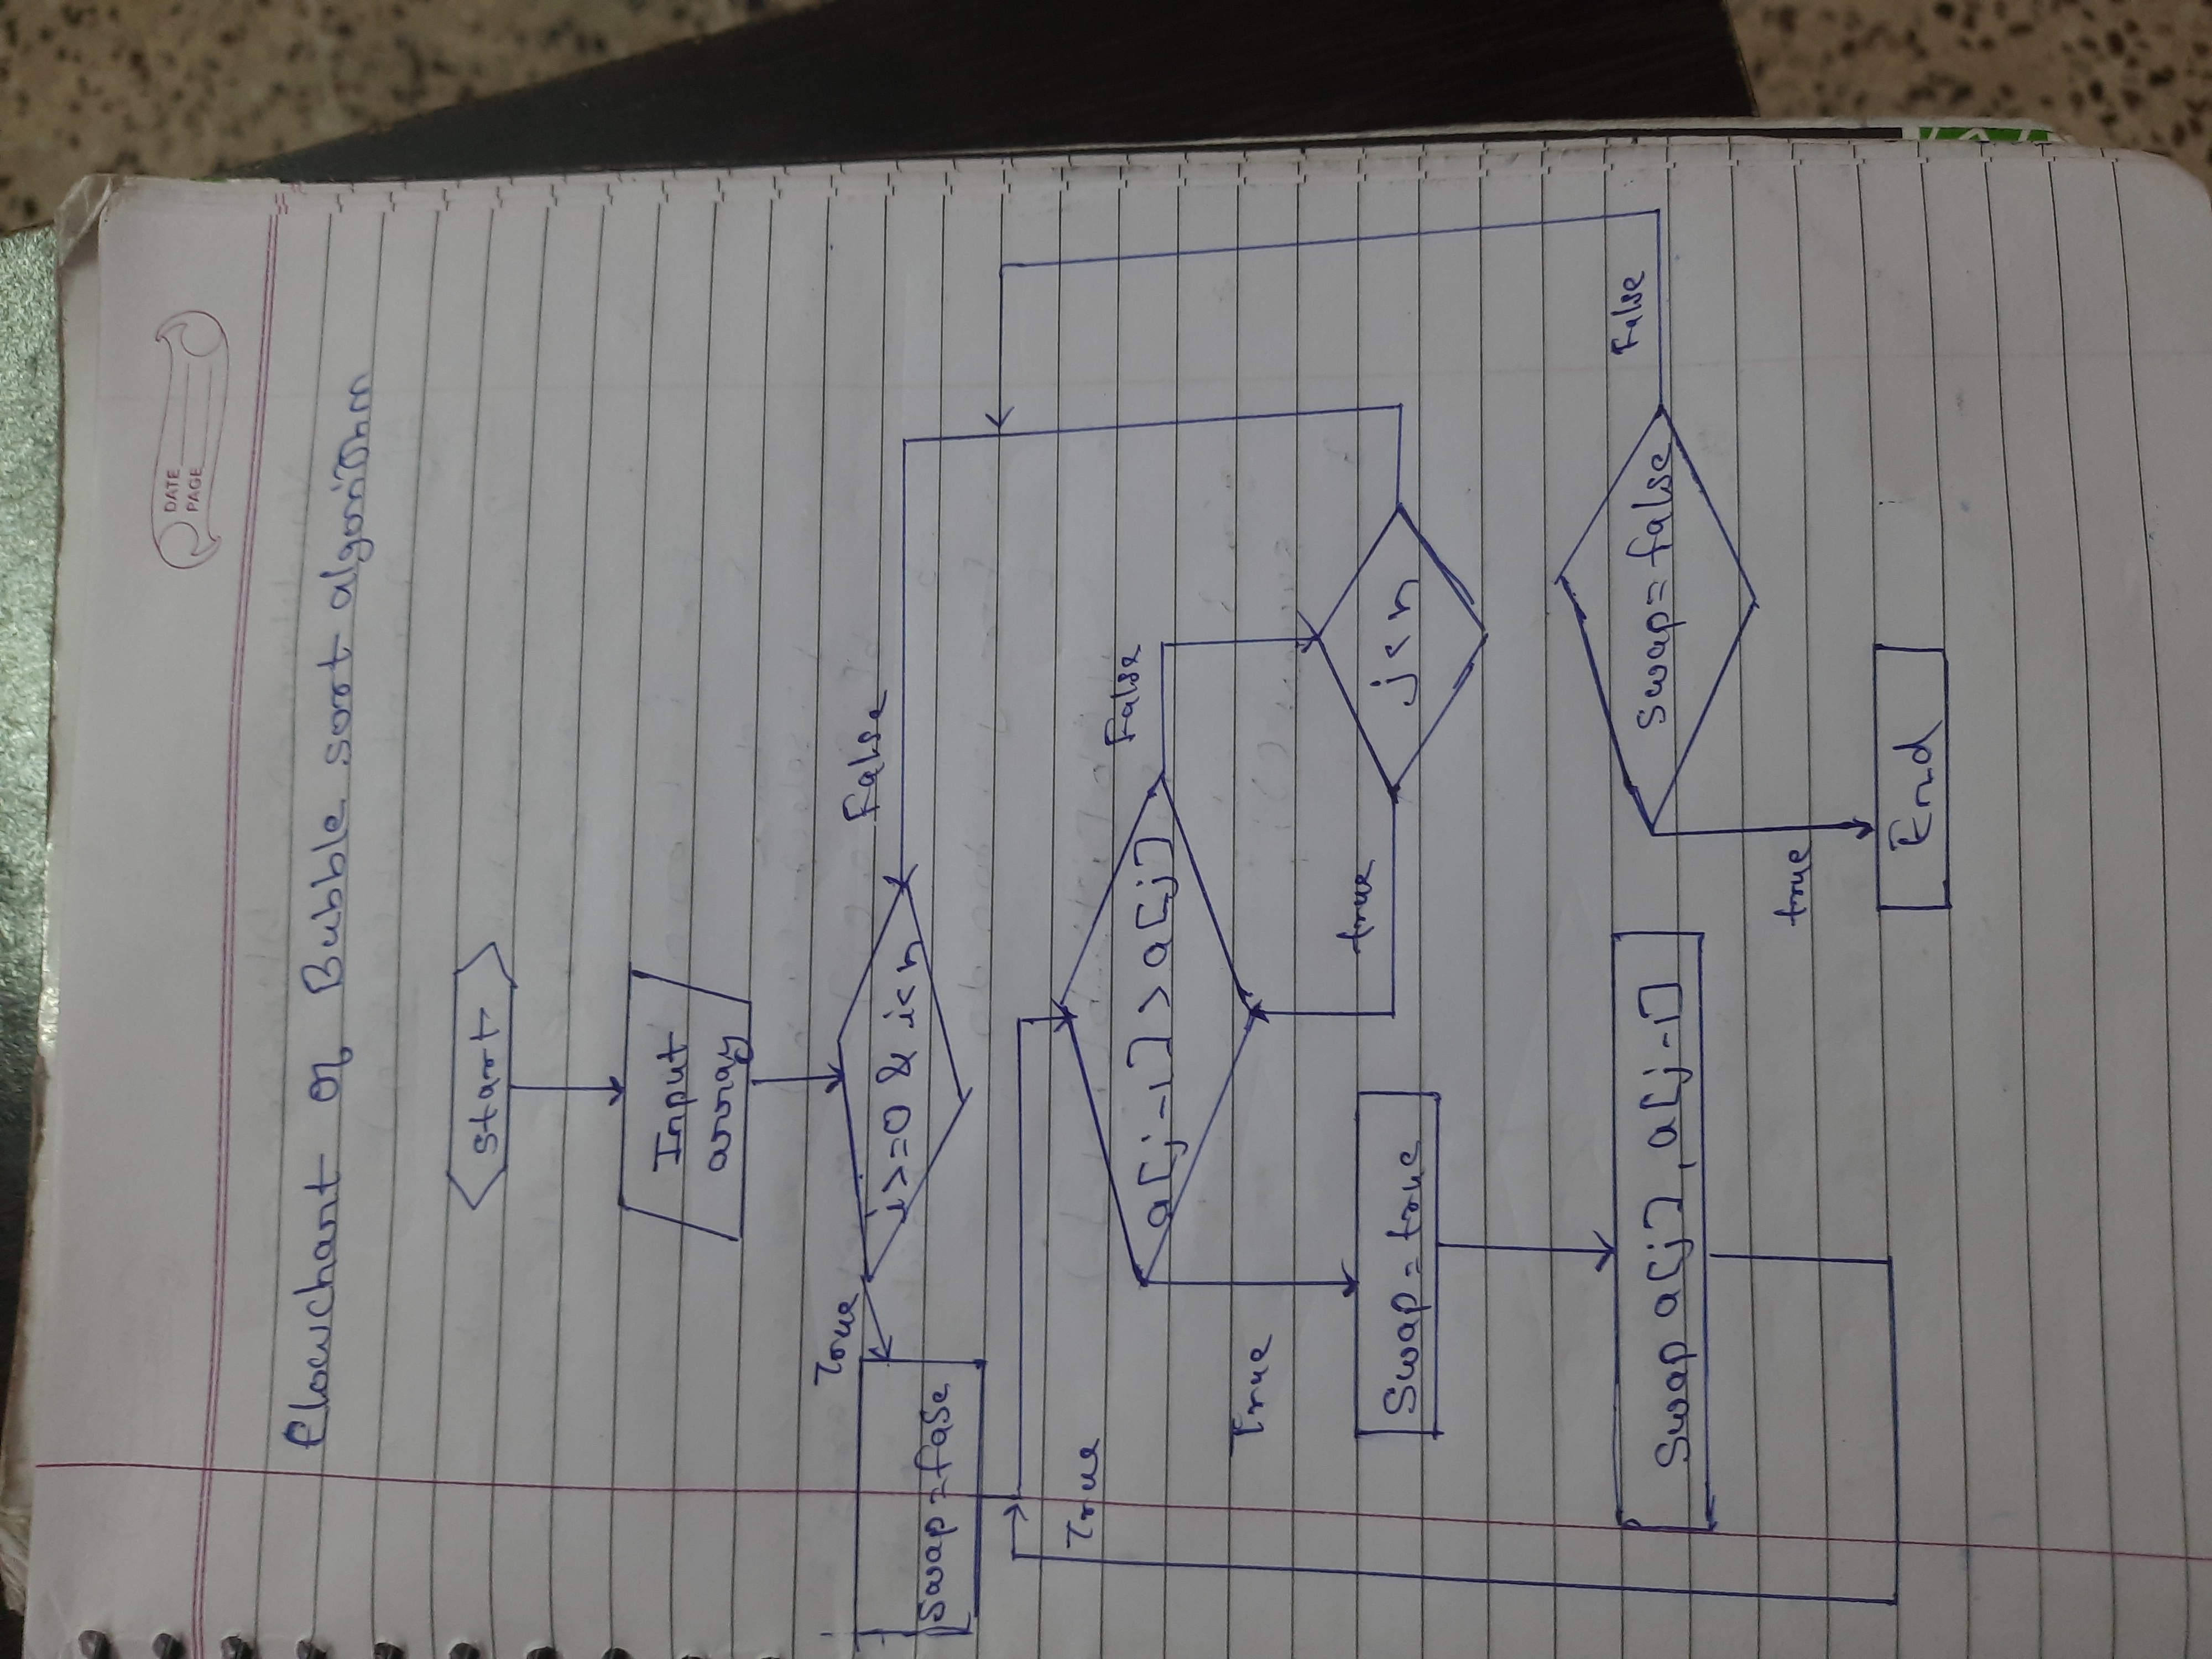 DATE
PAGE
Flowchart of Bubble sort algorithm
start
Input
array
True
False
i>=0 & i<n
Swap = fase
True
a[j-1] > a[j]
False
True
true
Swap = true
j<n
Swap a[j], a[j-1]
swap = false
False
true
End